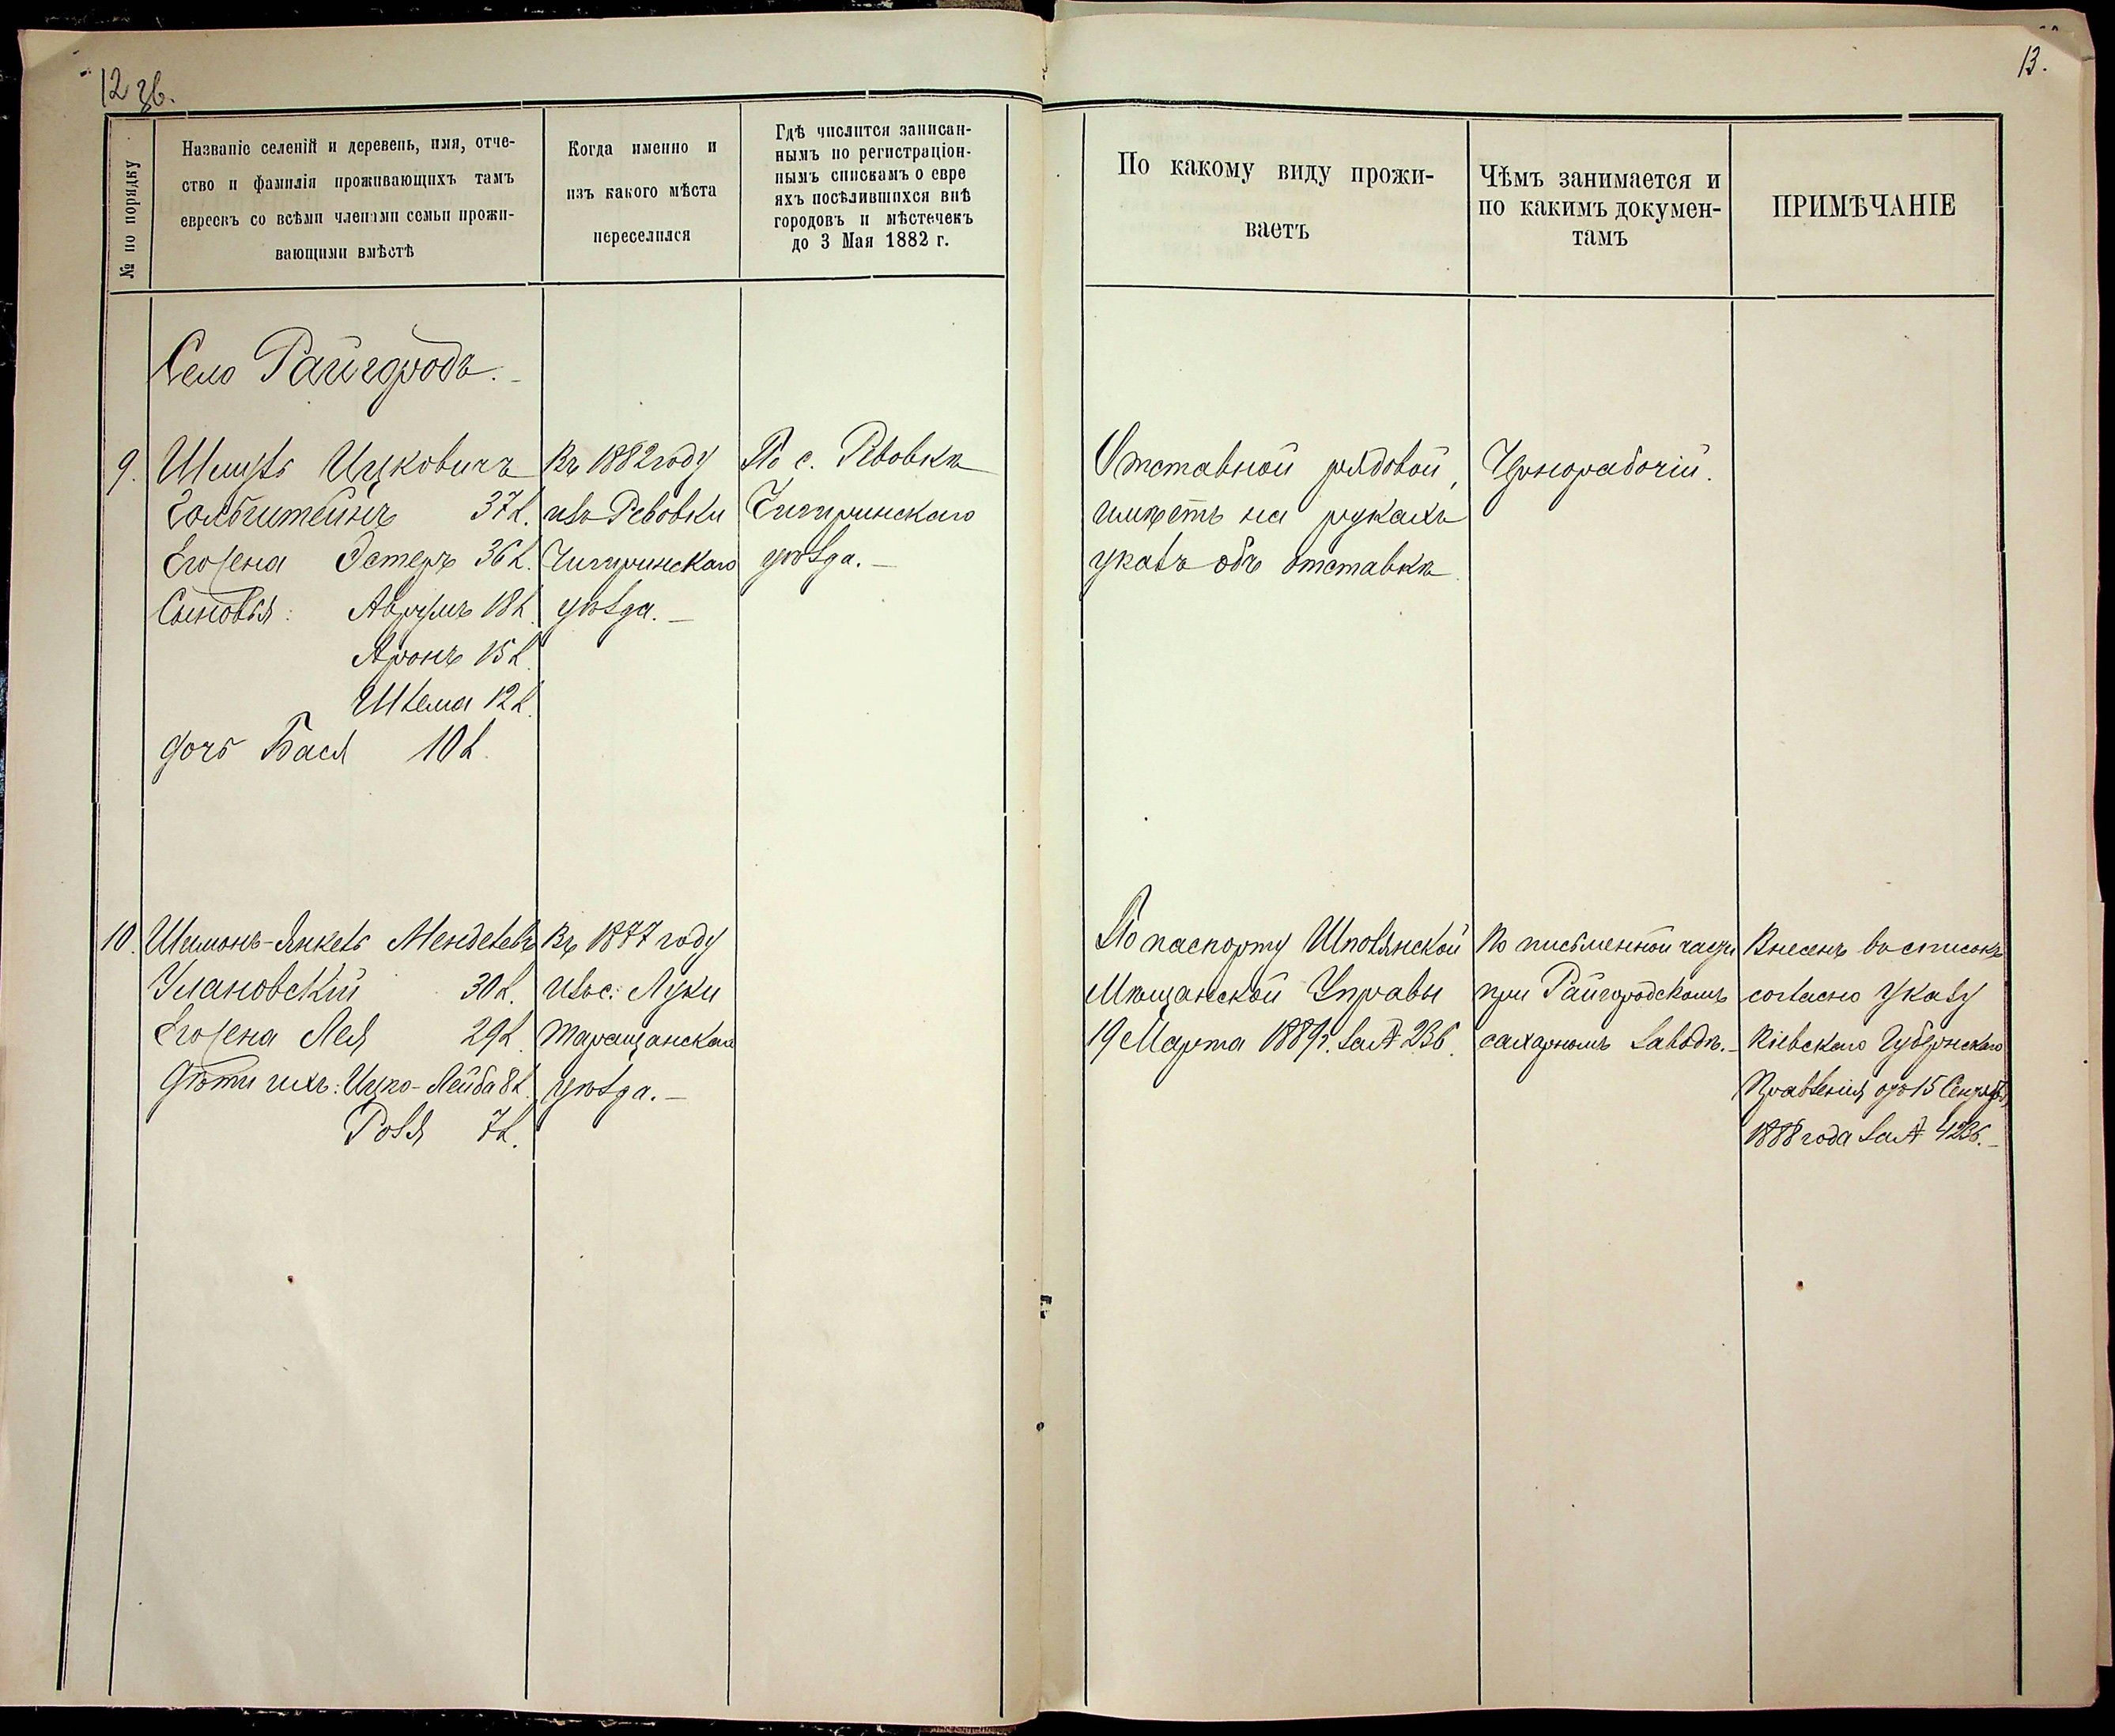 12 зв.
13.
№ по порядку
Названіе селеній и деревень, имя, отче-
ство и фамилія проживающихъ тамъ
евреевъ со всѣми членами семьи прожи-
вающими вмѣстѣ
Когда именно и
изъ какого мѣста
переселился
Гдѣ числится записан-
нымъ по регистраціон-
нымъ спискамъ о евре
яхъ посѣлившихся внѣ
городовъ и мѣстечекъ
до 3 Мая 1882 г.
По какому виду прожи-
ваетъ
Чѣмъ занимается и
по какимъ докумен-
тамъ
ПРИМѢЧАНІЕ
Село Райгородъ.
9. Шмуль Ицковичъ
Гольдштейнъ 37 л.
Его жена Эстеръ 36 л.
Сыновья: Аврумъ 18 л.
Аронъ 15 л.
Шлема 12 л.
дочь Бася 10 л.
Въ 1882 году
изъ Ревовки
Чигиринскаго
уѣзда.
По с. Ревовкѣ
Чигиринскаго
уѣзда.
Отставной рядовой,
имѣетъ на рукахъ
указъ объ отставкѣ
Чернорабочій.
10. Шимонъ-Янкель Менделевъ
Улановскій 30 л.
Его жена Лея 29 л.
Дѣти ихъ: Ицко-Лейба 8 л.
Розя 7 л.
Въ 1877 году
изъ с. Луки
Таращанскаго
уѣзда.
По паспорту Шполянской
Мѣщанской Управы
19 Марта 1889 г. за № 236.
По письменной части
при Райгородскомъ
сахарномъ заводѣ.
Внесенъ во списокъ
согласно указу
Кіевскаго Губернскаго
Правленія отъ 15 Сентября
1888 года за № 4236.